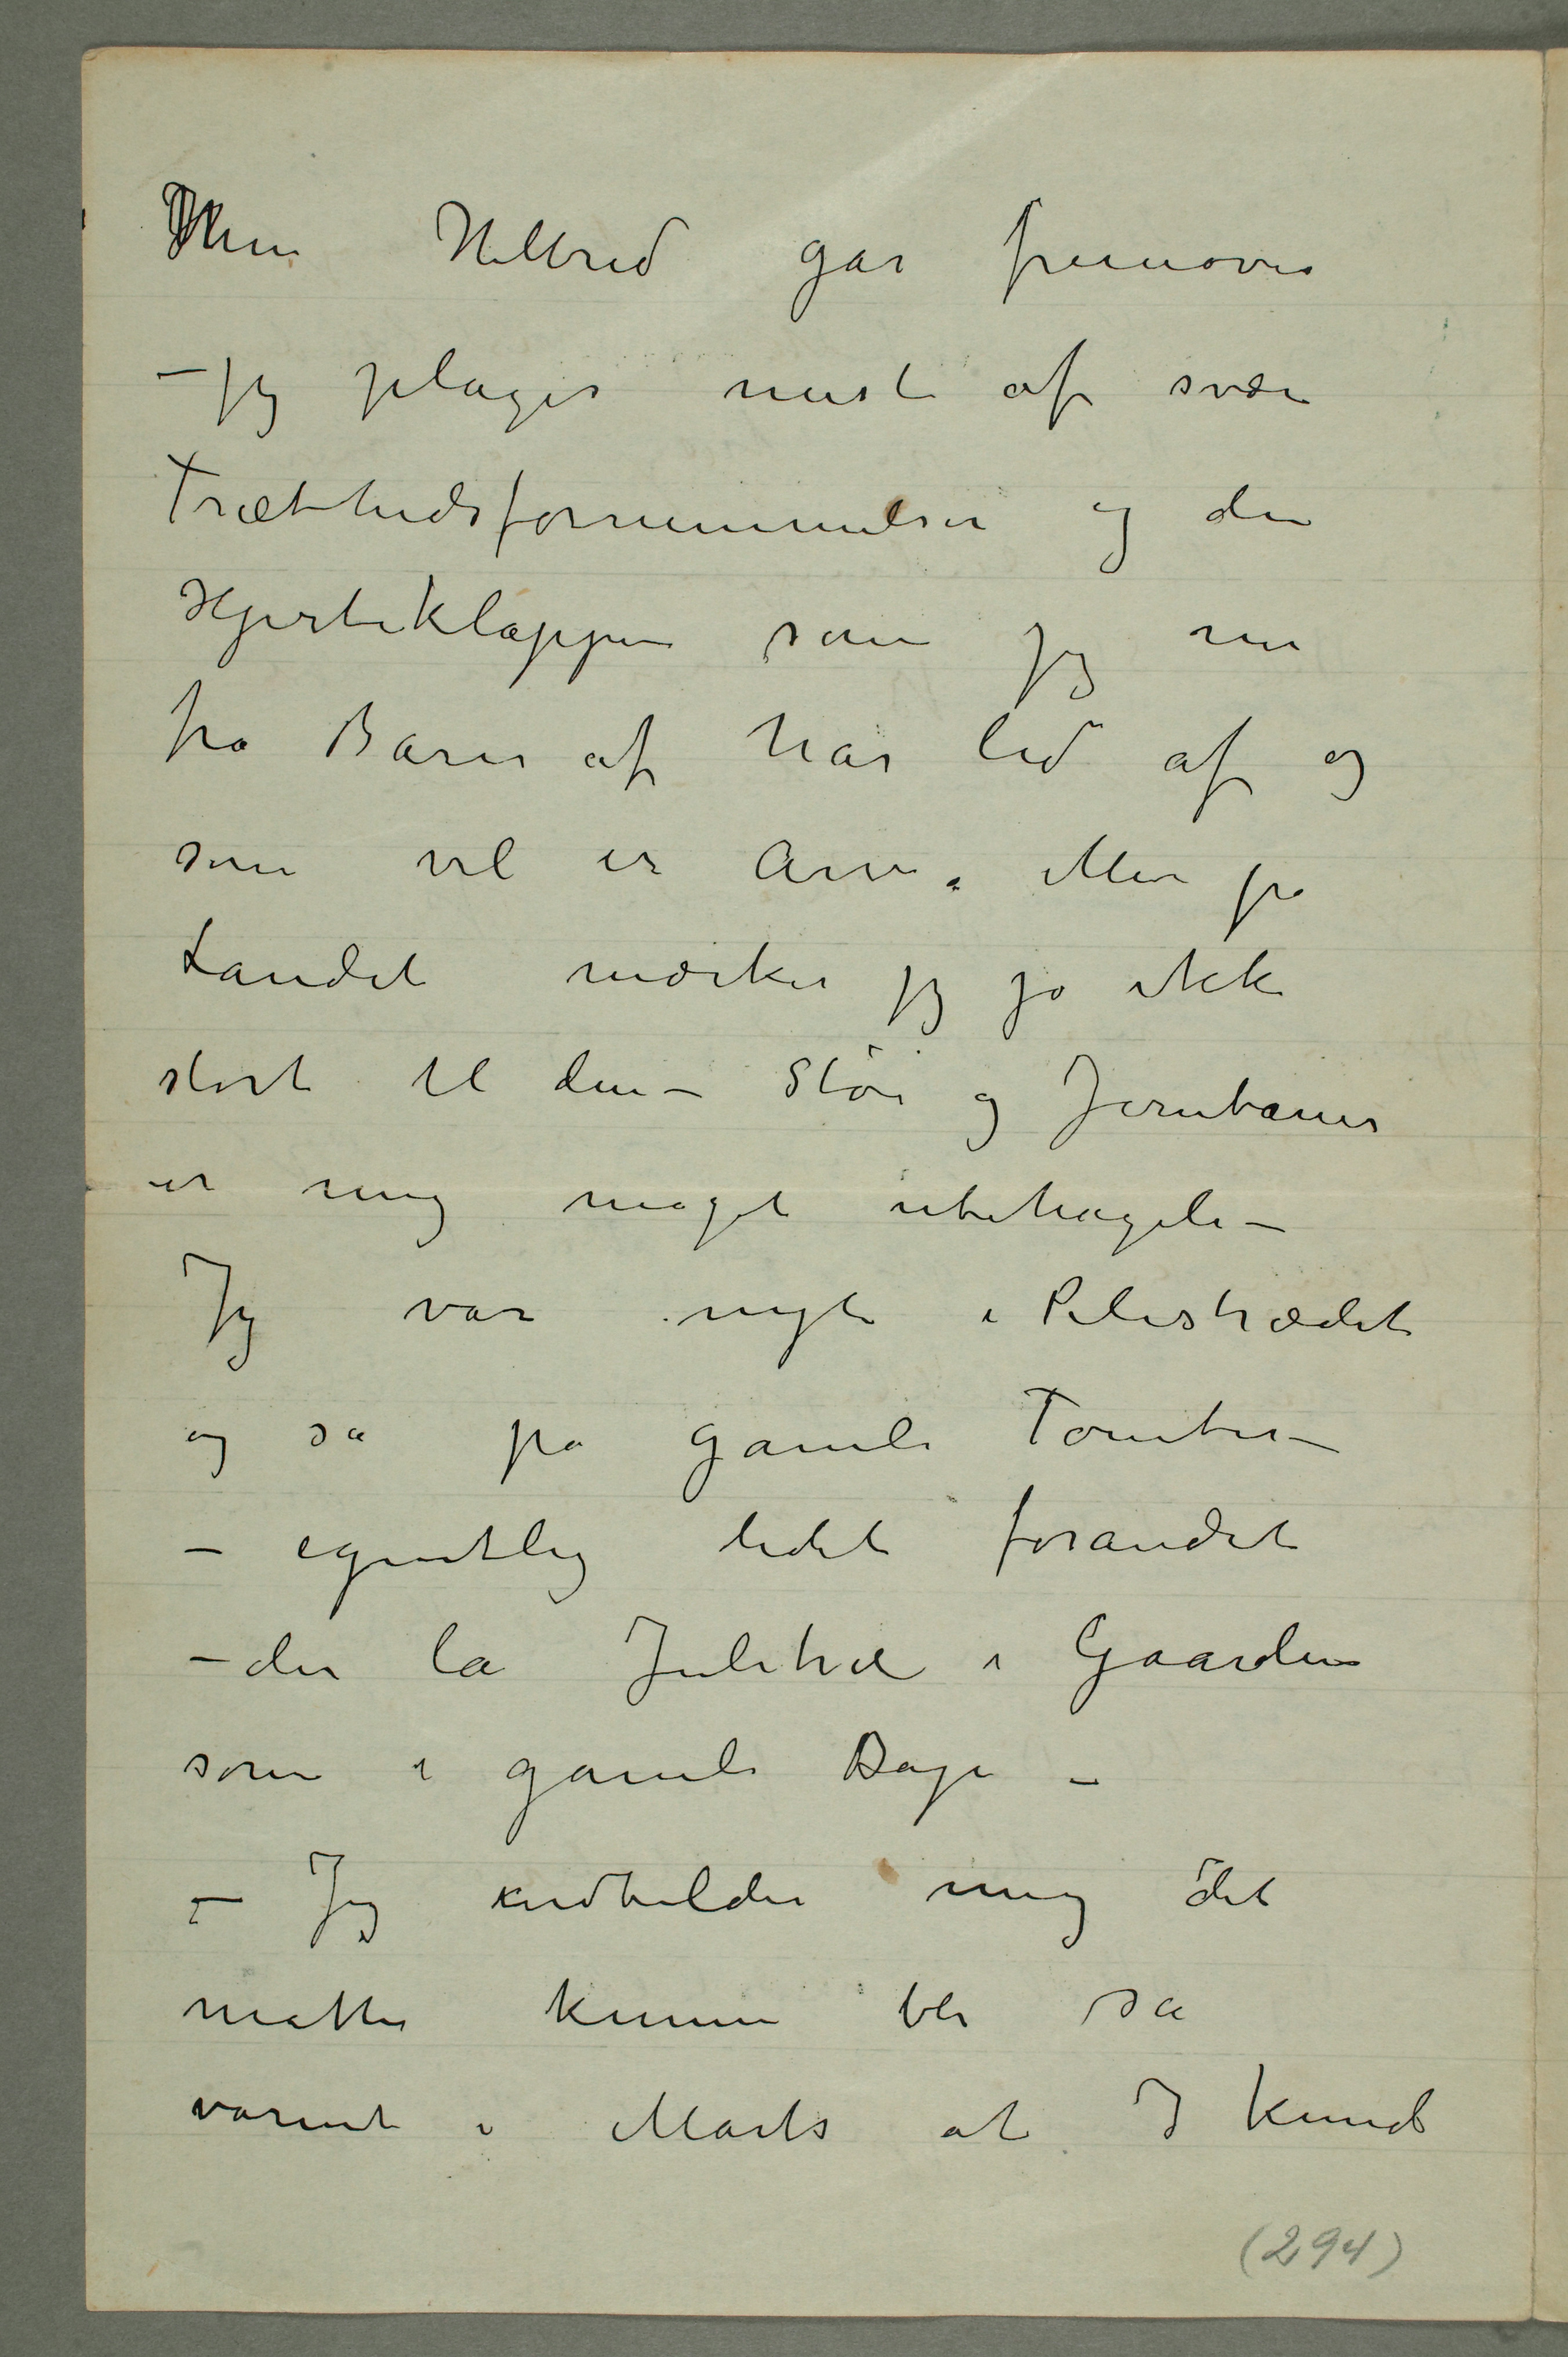 Min Helbred gar fremover
– jeg plages mest af svære
Træthedsfornemmelser og den
Hjerteklappen som jeg nu
fra Barn af har lid af og
som vel er Arv. Men på
Landet mærker jeg jo ikke
stort til den – Støi og Jernbaner
er mig meget ubehagele –
Jeg var nyli i Pilestrædet
og sa på gamle Tomter –
– egentlig lidet forandret
– der la Juletræ i Gaarden
som i gamle Dage –
– Jeg indbilder mig det
matte kunne bli sa
varmt i Marts at I kunde
(294)